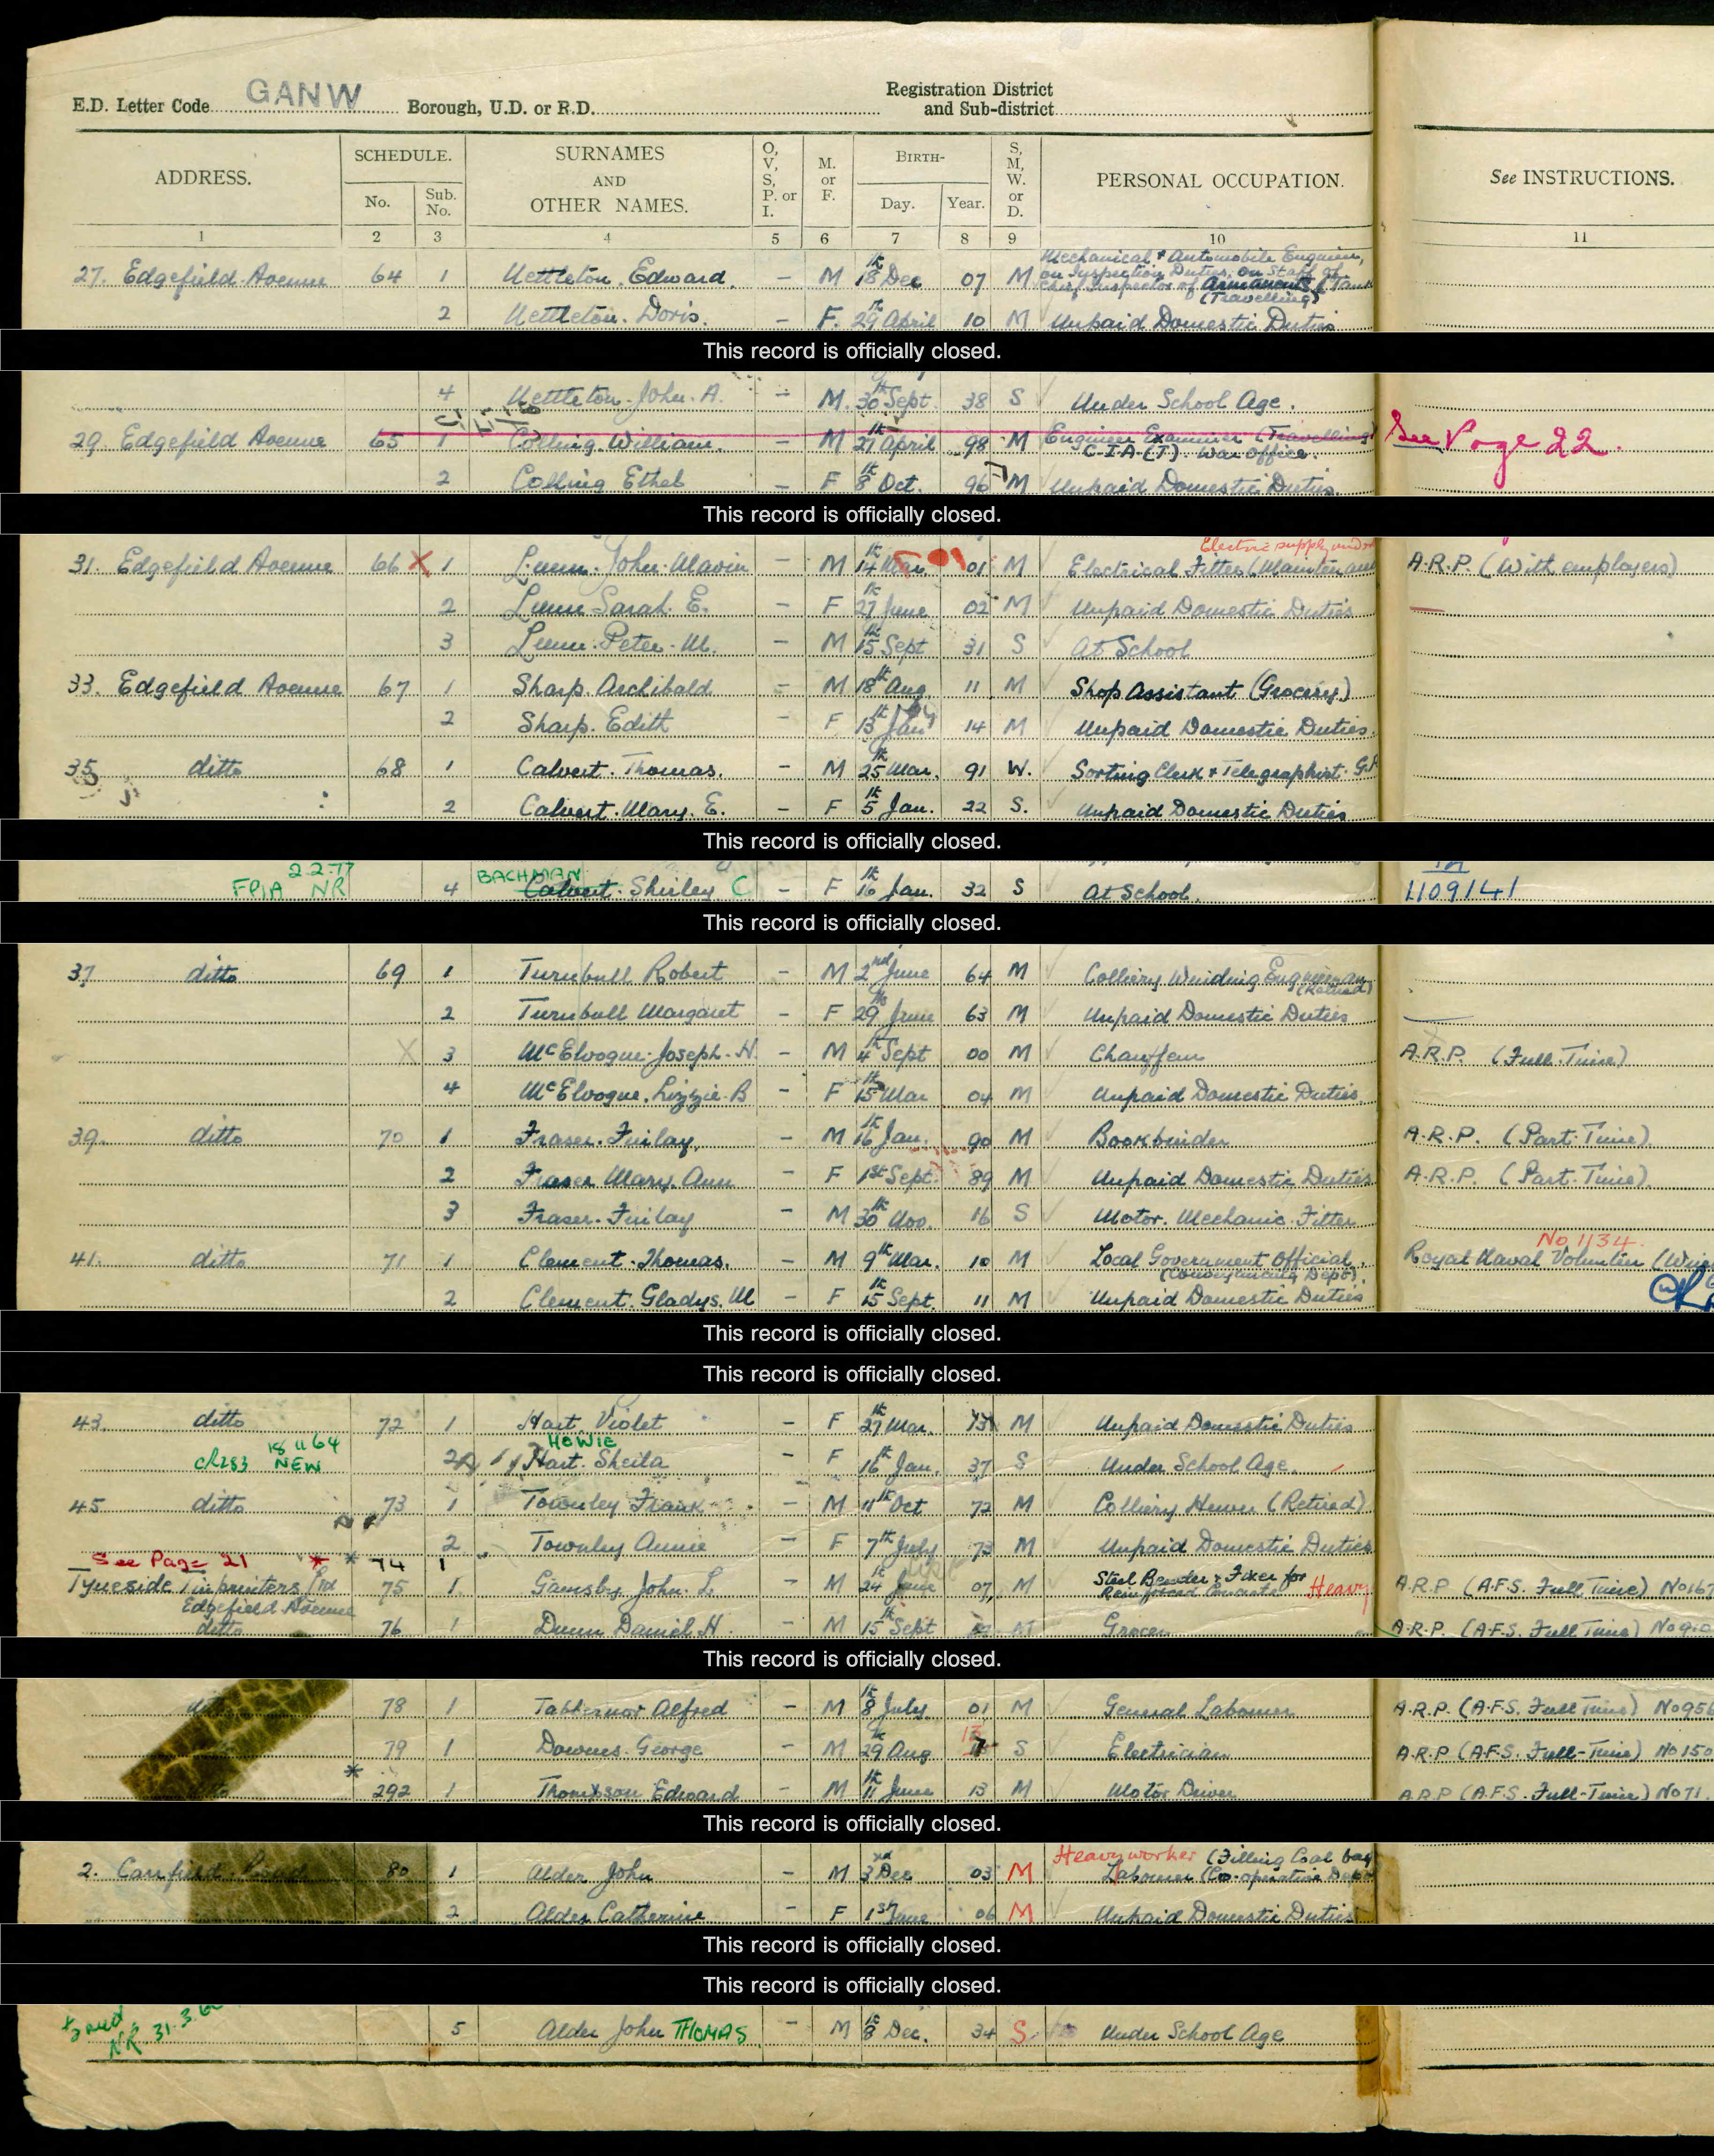 E.D. Letter Code GANW Borough, U.D. or R.D. Registration District and Sub-district
ADDRESS. SCHEDULE. No. Sub. No. SURNAMES AND OTHER NAMES. O, V, S, P. or I. M. or F. BIRTH- Day. Year. S, M, W. or D. PERSONAL OCCUPATION. See INSTRUCTIONS.
1 2 3 4 5 6 7 8 9 10 11
27. Edgefield Avenue 64 1 Nettleton. Edward. - M 18th Dec 07 M Mechanical & Automobile Engineer, on Inspection Duties, on Staff of Chief Inspector of Armaments (Tank (Travelling)
2 Nettleton. Doris. - F. 29th April 10 M Unpaid Domestic Duties
This record is officially closed.
4 Nettleton. John. A. - M. 30th Sept. 38 S Under School Age.
29. Edgefield Avenue 65 1 Colling. William. - M 27th April 98 M Engineer Examiner (Travelling) C-I-A-(T). War Office. See Page 22.
2 Colling Ethel - F 8th Oct. 96 M Unpaid Domestic Duties.
This record is officially closed.
Electric supply
31. Edgefield Avenue 66 X 1 Lunn. John. Mavin - M 14th Mar 01 M Electrical Fitter (Maintenance A.R.P. (With employers)
2 Lunn - Sarah. E. - F 27th June 02 M Unpaid Domestic Duties
3 Lunn. Peter. M. - M 15th Sept 31 S At School
33. Edgefield Avenue 67 1 Sharp. Archibald - M 18th Aug 11 M Shop Assistant (Grocery)
2 Sharp. Edith - F 13th Jan 14 M Unpaid Domestic Duties.
35 ditto 68 1 Calvert. Thomas. - M 25th Mar. 91 W. Sorting Clerk & Telegraphist. G.P
2 Calvert. Mary. E. - F 5th Jan. 22 S. Unpaid Domestic Duties
This record is officially closed.
2.2.77 FPIA NR 4 BACHMAN Calvert. Shirley C - F 16th Jan. 32 S At School. 1109141
This record is officially closed.
37 ditto 69 1 Turnbull Robert - M 2nd June 64 M Colliery Winding Engineman (Retired)
2 Turnbull Margaret - F 29th June 63 M Unpaid Domestic Duties
X 3 McElvogue. Joseph. H. - M 4th Sept 00 M Chauffeur A.R.P. (Full. Time)
4 McElvogue. Lizzie. B - F 15th Mar 04 M Unpaid Domestic Duties
39. ditto 70 1 Fraser. Finlay. - M 16th Jan. 90 M Bookbinder A.R.P. (Part. Time)
2 Fraser Mary. Ann - F 1st Sept. 89 M Unpaid Domestic Duties A.R.P. (Part. Time)
3 Fraser. Finlay - M 30th Nov. 16 S Motor. Mechanic. Fitter
No 1134
41. ditto 71 1 Clement. Thomas. - M 9th Mar. 10 M Local Government Official. (Conveyancing Dept). Royal Naval Volunteer
2 Clement. Gladys. M - F 15th Sept. 11 M Unpaid Domestic Duties
This record is officially closed.
This record is officially closed.
43. ditto 72 1 Hart Violet - F 27th Mar. 13 M Unpaid Domestic Duties
CR283 18 11 64 NEW 2 HOWIE Hart. Sheila - F 16th Jan. 37 S Under School Age.
45 ditto 73 1 Townley Frank - M 11th Oct 72 M Colliery Hewer (Retired)
2 Townley Annie - F 7th July 73 M Unpaid Domestic Duties
See Page 21 * * 74 1
Tyneside Tinprinters Ltd Edgefield Avenue 75 1. Gamsby John. L. - M 24th June 07 M Steel Bender & Fixer for Reinforced Concrete Heavy A.R.P (A.F.S. Full Time) No 167
ditto 76 1 Dunn Daniel. H. - M 15th Sept M Grocer A.R.P. (A.F.S. Full Time) No
This record is officially closed.
78 1 Tabbernor Alfred - M 8th July 01 M General Labourer A.R.P. (A.F.S. Full Time) No 956
79 1 Downes. George - M 29th Aug 13 S Electrician A.R.P (A.F.S. Full-Time) No 150
* 292 1 Thompson Edward - M 11th June 13 M Motor Driver A.R.P (A.F.S. Full-Time) No 71.
This record is officially closed.
2. Carrfield Road 80 1 Alder John - M 3rd Dec 03 M Heavy worker (Filling Coal bags Labourer (Co-operative
2 Alder Catherine - F 1st June 06 M Unpaid Domestic Duties
This record is officially closed.
This record is officially closed.
NR 31.3. 5 Alder John THOMAS - M 8th Dec. 34 S Under School Age